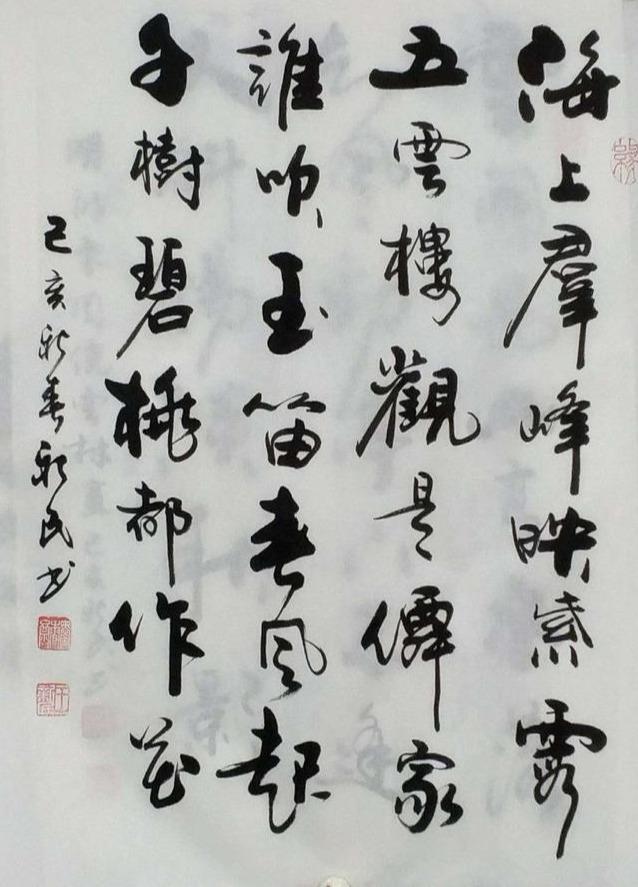 海上羣峰映紫霞
五雲樓觀是僊家
誰吹玉笛春風起
千樹碧桃都作花
己亥新春新民書